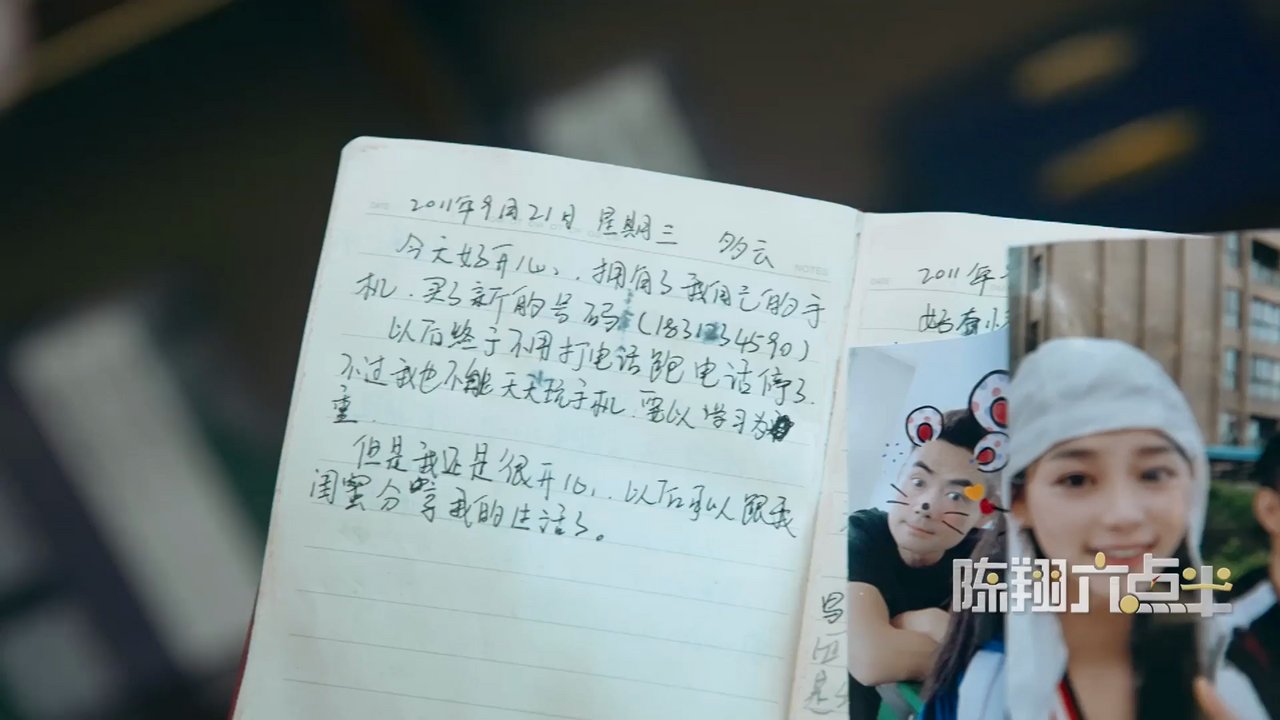 DATE
2011年9月21日 星期三 多云
NOTES
今天好开心,.拥有了我自己的手
机.买了新的号码(1831234590)
以后终于不用打电话跑电话停了.
不过我也不能天天玩手机.要以学习为
重.
但是我还是很开心,.以后可以跟我
闺蜜分享我的生活了。
DATE
2011年
好奇小
写
还
是
陈翔六点半